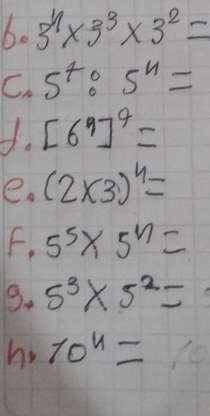 b. 3⁴×3³×3²=
c. 5⁷: 5⁴=
d. [6⁹]⁹=
e. (2×3)⁴=
f. 5⁵× 5⁴=
g. 5³× 5²=
h. 10⁴=